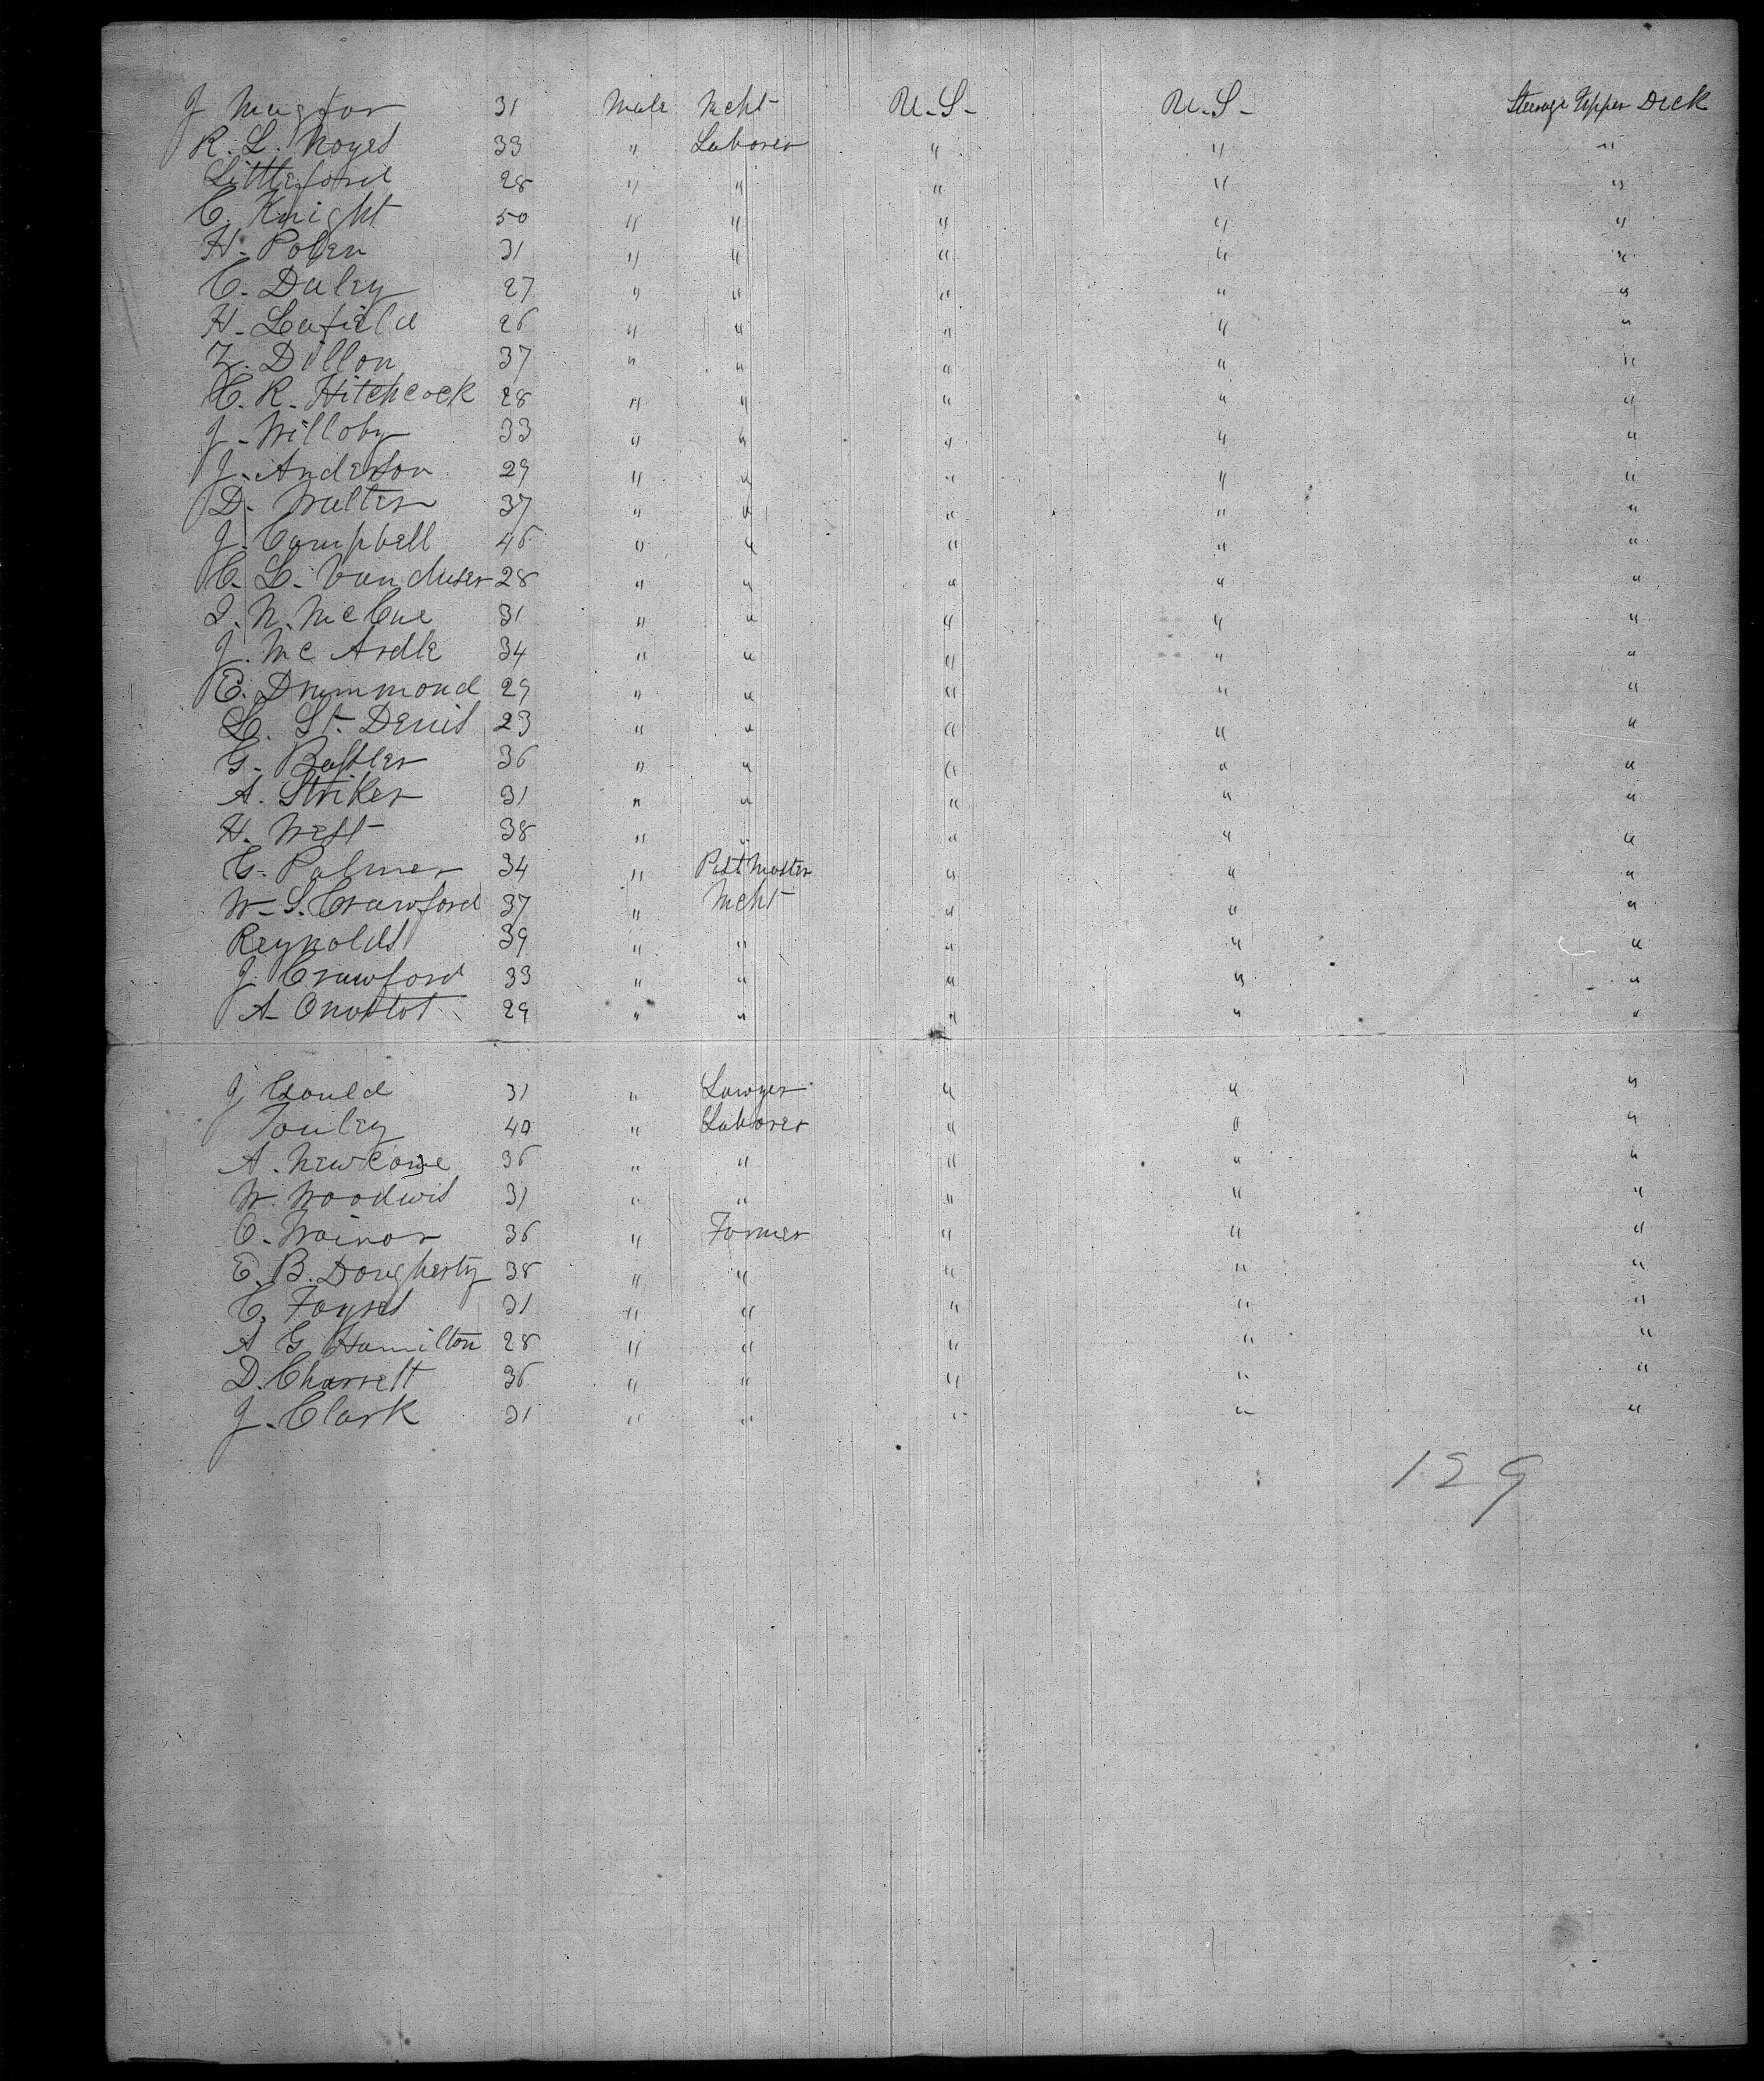 J 31 Male Mcht U.S- U.S- Steerage Upper Deck
R. L. Noyes 33 " Laborer " " "
Littleford 28 " " " " "
C. Knight 50 " " " " "
H. Polen 31 " " " " "
C. Daley 27 " " " " "
H. Lafield 26 " " " " "
Z. Dillon 37 " " " " "
C. R. Hitchcock 28 " " " " "
J. Willoby 33 " " " " "
J. Anderson 29 " " " " "
D. Walter 37 " " " " "
J. Campbell 46 " " " " "
C. L. Van duser 28 " " " " "
J. N. McCue 31 " " " " "
J. Mc Ardle 34 " " " " "
E. Drummond 29 " " " " "
L. St. Denis 23 " " " " "
G. 36 " " " " "
A. Striker 31 " " " " "
H. West 38 " " " " "
G. Palmer 34 " Postmaster " " "
W. S. Crawford 37 " Mcht " " "
Reynolds 39 " " " " "
J. Crawford 33 " " " " "
A. 29 " " " " "
J Gould 31 " Lawyer " " "
40 " Laborer " " "
A. Newcome 36 " " " " "
W. 31 " " " " "
O. 36 " Farmer " " "
E. B. Dougherty 38 " " " " "
C. 31 " " " " "
A G Hamilton 28 " " " " "
D. Charrett 36 " " " " "
J. Clark 31 " " " " "
129